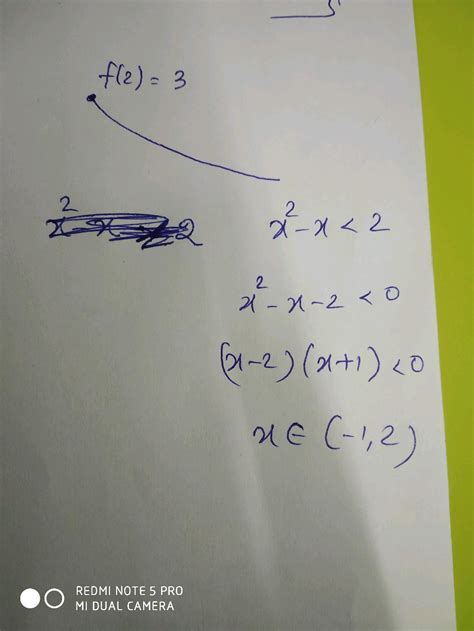 f(2) = 3
x² - x < 2
x² - x - 2 < 0
(x-2)(x+1) < 0
x ∈ (-1, 2)
REDMI NOTE 5 PRO
MI DUAL CAMERA